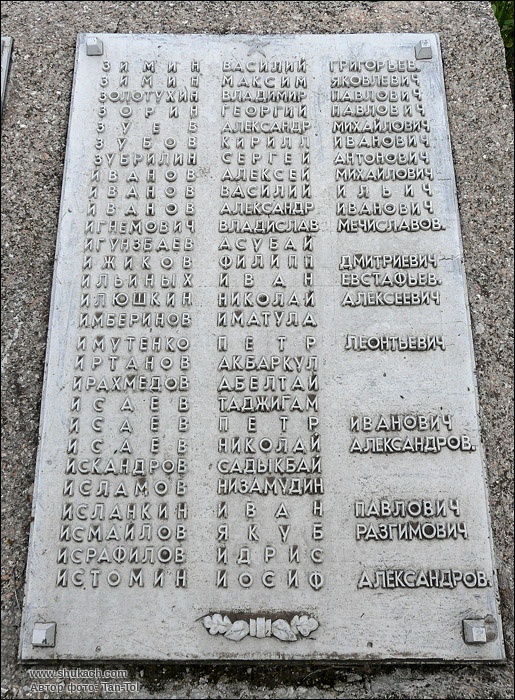 ЗИМИН ВАСИЛИЙ ГРИГОРЬЕВ.
ЗИМИН МАКСИМ ЯКОВЛЕВИЧ
ЗОЛОТУХИН ВЛАДИМИР ПАВЛОВИЧ
ЗОРИН ГЕОРГИЙ ПАВЛОВИЧ
ЗУЕВ АЛЕКСАНДР МИХАЙЛОВИЧ
ЗУБОВ КИРИЛЛ ИВАНОВИЧ
ЗУБРИЛИН СЕРГЕЙ АНТОНОВИЧ
ИВАНОВ АЛЕКСЕЙ МИХАЙЛОВИЧ
ИВАНОВ ВАСИЛИЙ ИЛЬИЧ
ИВАНОВ АЛЕКСАНДР ИВАНОВИЧ
ИГНЕМОВИЧ ВЛАДИСЛАВ МЕЧИСЛАВОВ.
ИГУНЗБАЕВ АСУБАЙ
ИЖИКОВ ФИЛИПП ДМИТРИЕВИЧ
ИЛЬИНЫХ ИВАН ЕВСТАФЬЕВ.
ИЛЮШКИН НИКОЛАЙ АЛЕКСЕЕВИЧ
ИМБЕРИНОВ ИМАТУЛА
ИМУТЕНКО ПЕТР ЛЕОНТЬЕВИЧ
ИРТАНОВ АКБАРКУЛ
ИРАХМЕДОВ АБЕЛТАЙ
ИСАЕВ ТАДЖИГАМ
ИСАЕВ ПЕТР ИВАНОВИЧ
ИСАЕВ НИКОЛАЙ АЛЕКСАНДРОВ.
ИСКАНДРОВ САДЫКБАЙ
ИСЛАМОВ НИЗАМУДИН
ИСЛАНКИН ИВАН ПАВЛОВИЧ
ИСМАЙЛОВ ЯКУБ РАЗГИМОВИЧ
ИСРАФИЛОВ ИДРИС
ИСТОМИН ИОСИФ АЛЕКСАНДРОВ.
www.shukach.com
Автор фото: Tan-Tol